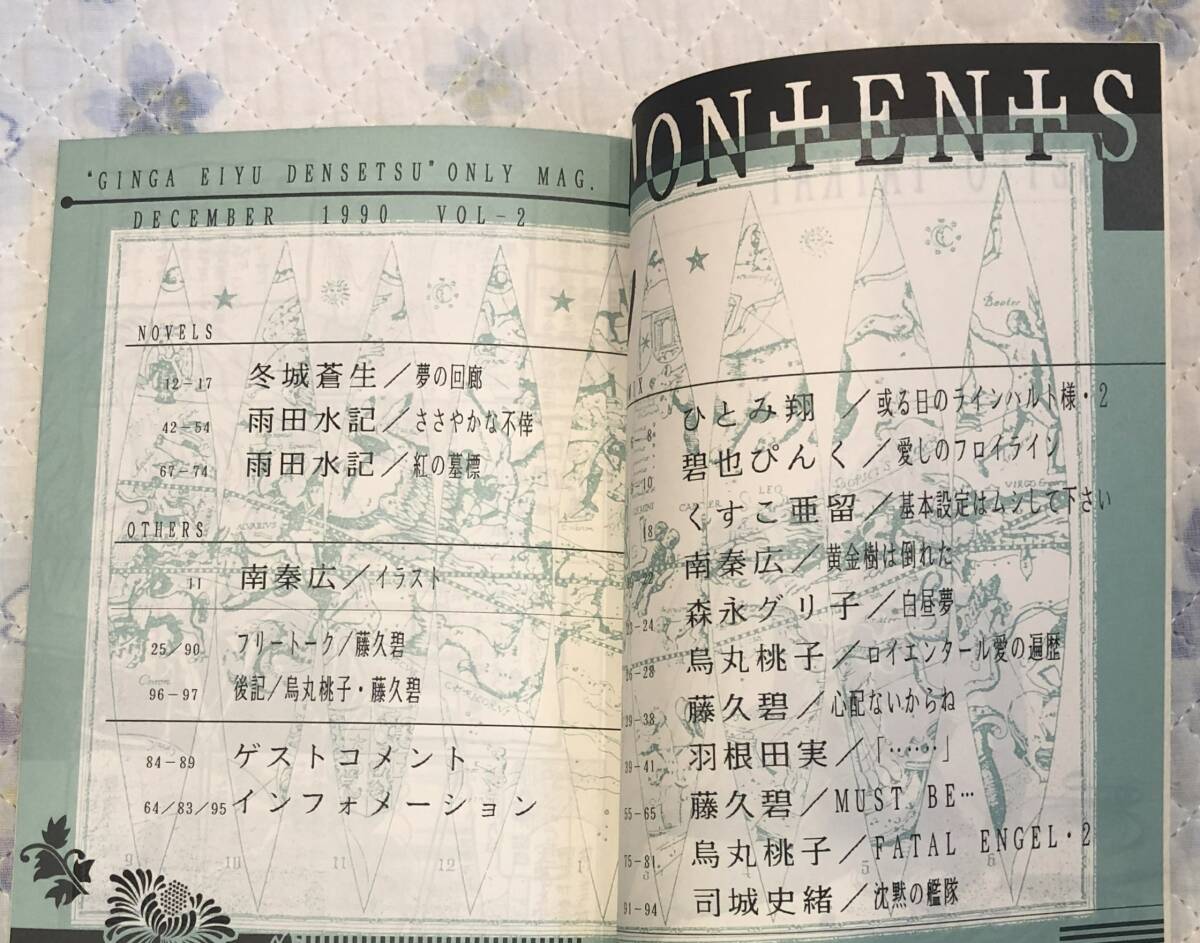 "GINGA EIYU DENSETSU" ONLY MAG.
DECEMBER 1990 VOL-2
NOVELS
12-17 冬城蒼生／夢の回廊
42-54 雨田水記／ささやかな不倖
67-74 雨田水記／紅の墓標
OTHERS
11 南秦広／イラスト
25/90 フリートーク／藤久碧
96-97 後記／烏丸桃子・藤久碧
84-89 ゲストコメント
64/83/95 インフォメーション
CONTENTS
ひとみ翔／或る日のラインハルト様・2
碧也ぴんく／愛しのフロイライン
くすこ亜留／基本設定はムシして下さい
南秦広／黄金樹は倒れた
23-24 森永グリ子／白昼夢
26-28 烏丸桃子／ロイエンタール愛の遍歴
29-38 藤久碧／心配ないからね
39-41 羽根田実／「……」
55-65 藤久碧／MUST BE…
75-81 烏丸桃子／FATAL ENGEL・2
91-94 司城史緒／沈黙の艦隊
Bootes
LEO
VIRGO
9 10 11 12 1 5 6